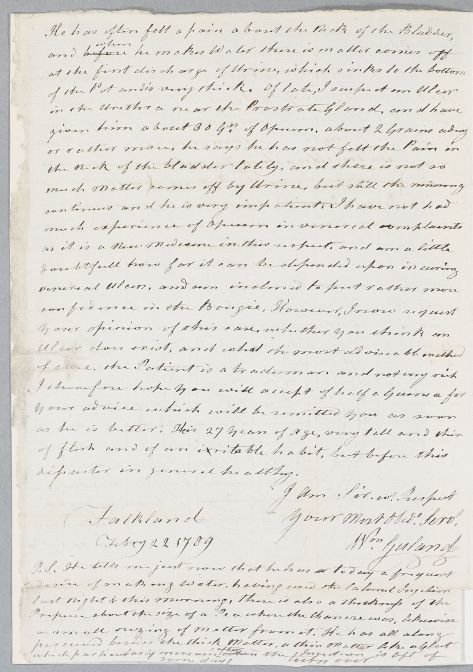 He has often felt a pain about the Neck of the Bladder,
and before when he makes Water there is matter comes off
at the first discharge of Urine, which sinks to the bottom
of the Pot and is very thick. Of late, I suspect an Ulcer
in the Urethra near the Prostrate Gland, and have
given him about 30 Grs of Opium, about 2 Grains a day
or rather more, he says he has not felt the Pain in
the Neck of the bladder lately, and there is not so
much Matter comes off by Urine, but still the running
continues and he is very impatient. I have not had
much experience of Opium in venereal complaints
as it is a New Medicine in this respect, and am a little
doubtfull how far it can be depended upon in curing
venereal Ulcers, and am inclined to put rather more
confidence in the Bougie, However, I now request
Your opinion of this case, whether You think an
Ulcer does exist, and what the most adviseable method
of cure, the Patient is a tradesman and not very rich
I therefore hope You will accept of half a Guinea for
Your advice which will be remitted You as soon
as he is better. His 27 Years of Age, very tall and thin
of flesh and of an irritable habit, but before this
disaster in general healthy.
I Am Sir wt. Respect
Falkland
Your Most Obedt. Servt.
Febry 22 1789
Wm
P.S. He tells me just now that he has today a frequent
desire of making Water, having used the Injection
last night & this morning, There is also a of the
Prepuce about the size of a Pea where the chancre was, likewise
a small oozing of matter from it. He has all along
perceived beside the thick Matter, a thin Matter like
which particularly the is left off
some days